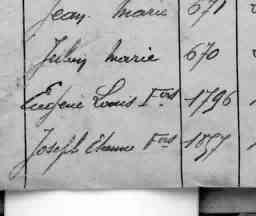 Jean Marie 671
Julien Marie 670
Eugène Louis Fois 1796
Joseph Etienne Fois 1897